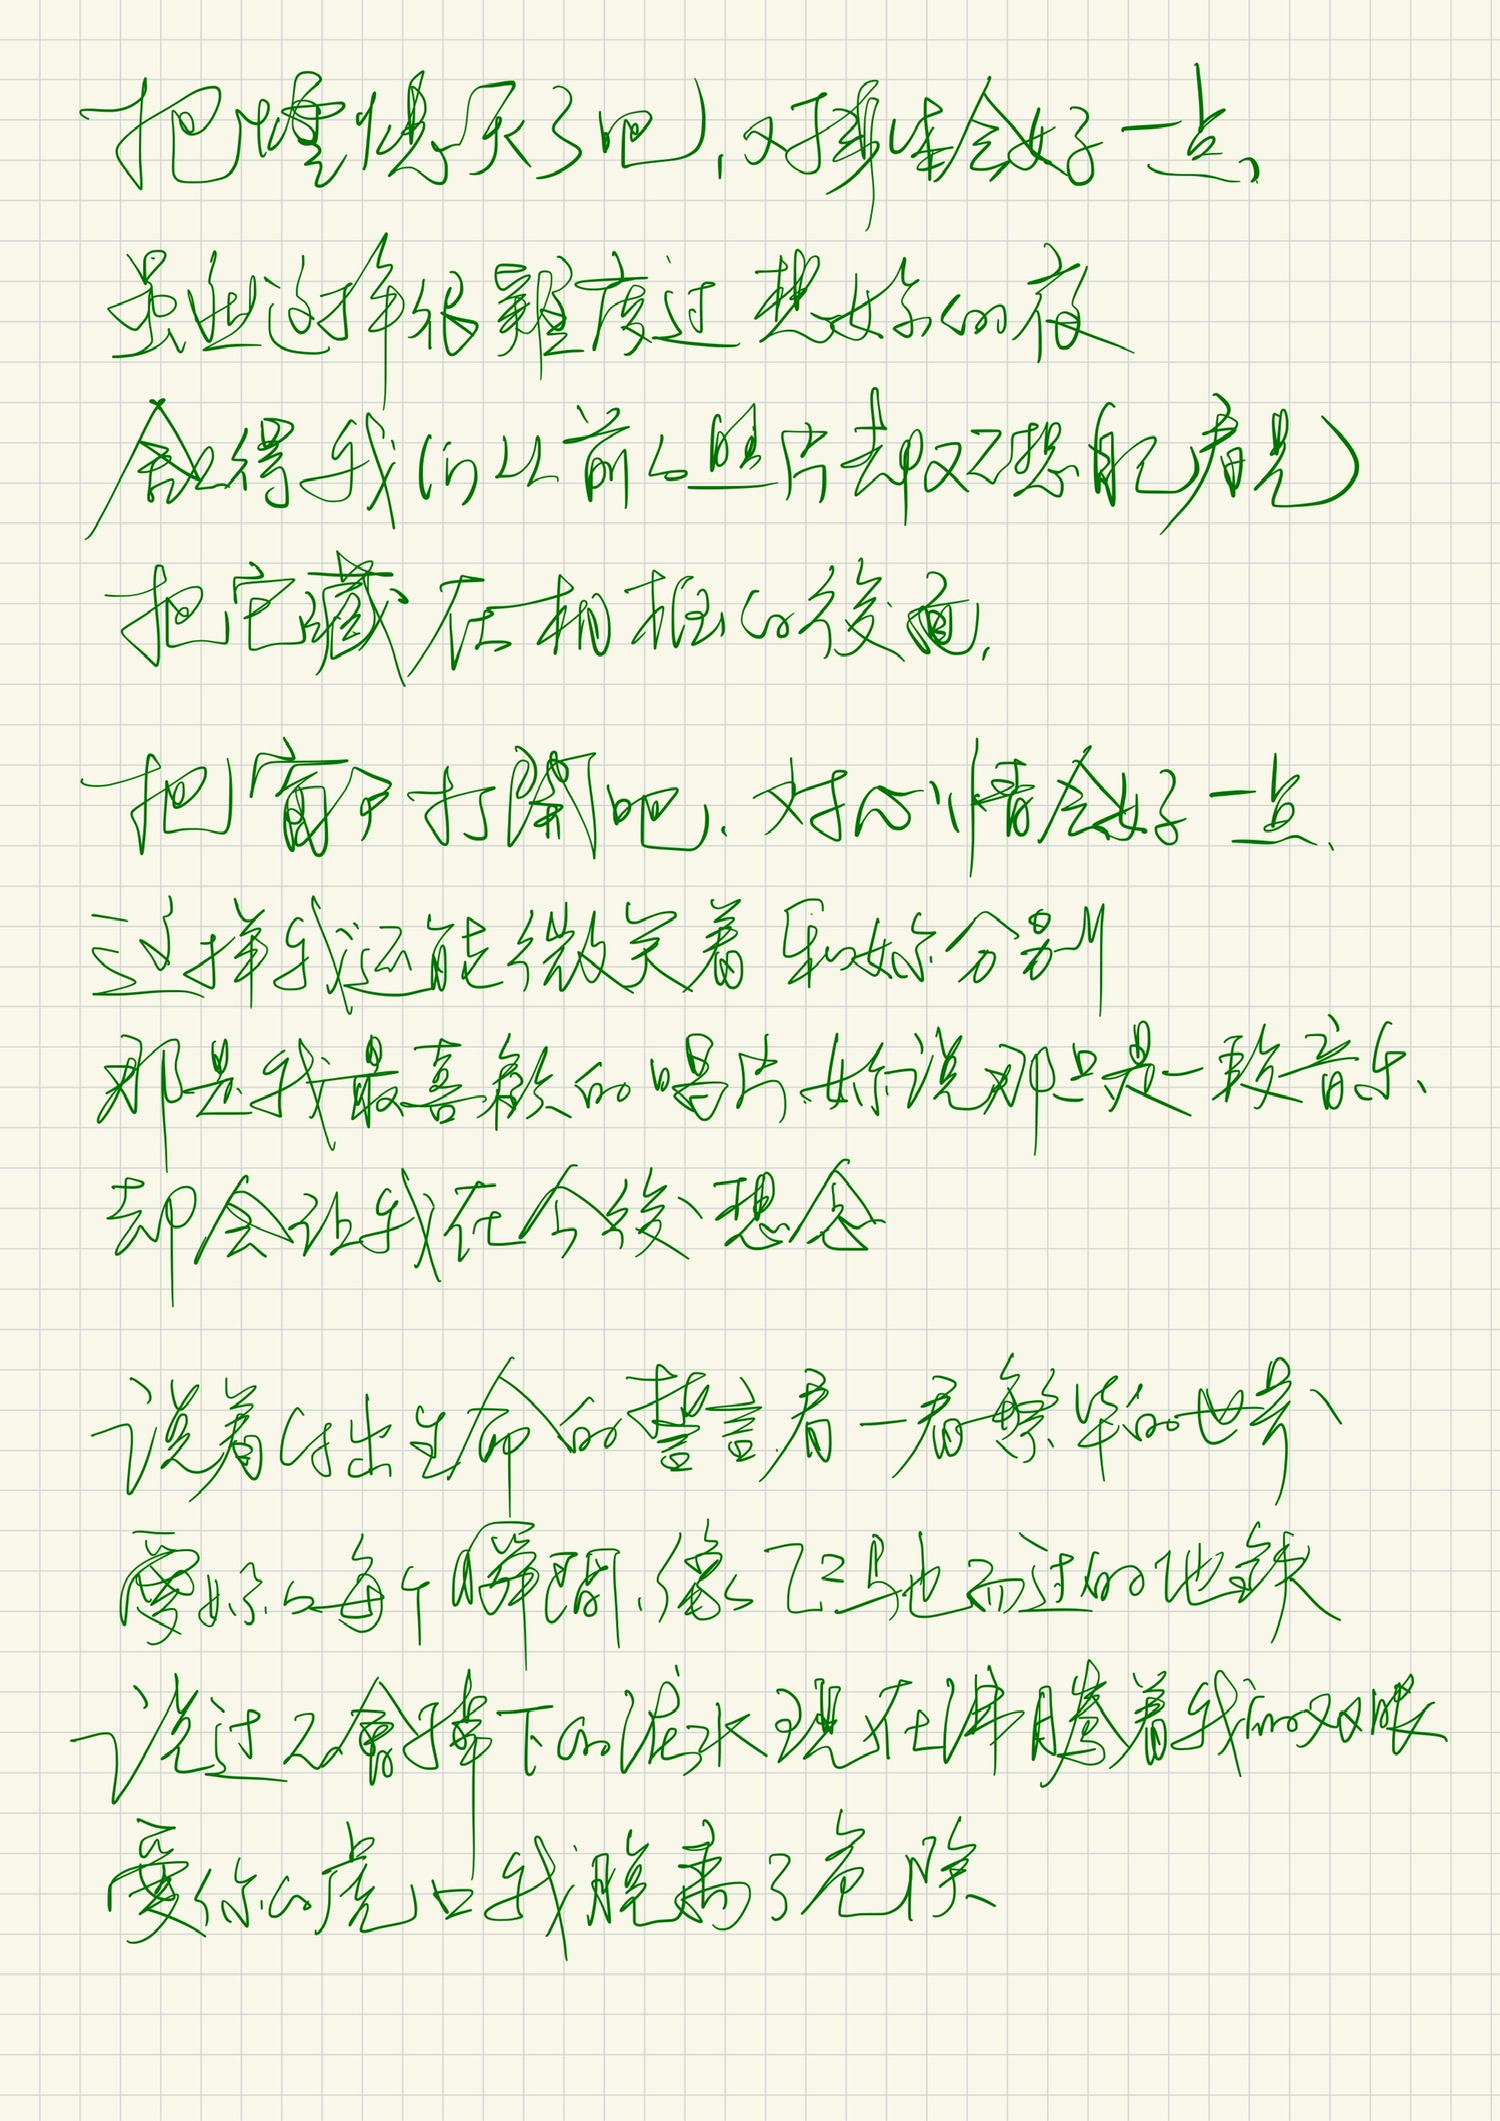 把烟熄灭了吧,对身体会好一点,
虽然这样很難度过想妳的夜
舍不得我们以前的照片却又不想再看見
把它藏在相框的後面,
把窗户打開吧,对心情会好一点,
这样我还能微笑着和妳分别
那是我最喜歡的唱片,妳说那只是一段音乐、
却会让我在今後想念
说着付出生命的誓言,看一看繁华的世界
愛妳的每个瞬間,像飞馳而过的地铁
说过不會掉下的泪水,现在沸腾着我的双眼
愛你的虎口我脱离了危险